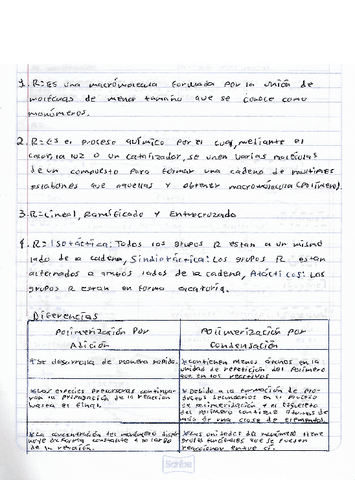 1. R= ES una macromolecula formada por la unión de
moléculas de menor tamaño que se conoce como
monómeros.
2. R= Es el proceso químico por el cual, mediante el
calor, la luz o un catalizador, se unen varias moléculas
de un compuesto para formar una cadena de multiples
eslabones que aquellas y obtener macromolécula (Polímero).
3. R= Lineal, Ramificado y Entrecruzado
4. R= Isotáctica: Todos los grupos R estan a un mismo
lado de la cadena, Sindiotáctica: Los grupos R estan
alternados a ambos lados de la cadena, Atácticos: Los
grupos R estan en forma
Diferencias
Polimerización Por
Adición
Polimerización por
Condensación
*Se desarrolla de manera rápida.
*Contienen menos átomos en la
unidad de repetición del Polímero
que en los reactivos
*Las especies precursoras continuan
con la propagación de la reacción
hasta el final.
*Debido a la formación de pro-
ductos secundarios en el
de polimerización y el esqueleto
del Polímero contiene átomos de
más de una clase de elementos.
*La concentración del monómero dismi-
nuye en forma constante a lo largo
de la reacción.
*Las unidades del monómero tiene
grupos funcionales que se pueden
reaccionar entre sí.
Scribe